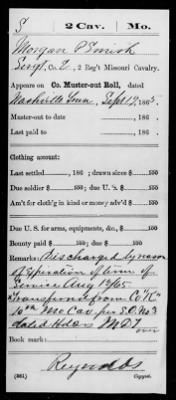 S | 2 Cav. | Mo.
Morgan Smith
Sergt, Co. L, 2 Reg't Missouri Cavalry.
Appears on Co. Muster-out Roll, dated
Nashville Tenn, Sept 19, 1865.
Muster-out to date 186
Last paid to 186
Clothing account:
Last settled 186 ; drawn since $ 100
Due soldier $ 100; due U. S. $ 100
Am't for cloth'g in kind or money adv'd $ 100
Due U. S. for arms, equipments, &c., $ 100
Bounty paid $ 100; due $ 100
Remarks: Discharged by reason
of Expiration of term of
Service Aug 13/65
Transferred from Co "K"
10th Mo Cav per S.O. No 3
dated Hdqrs M.D.T
over
Book mark:
Reynolds
(361) Copyist.